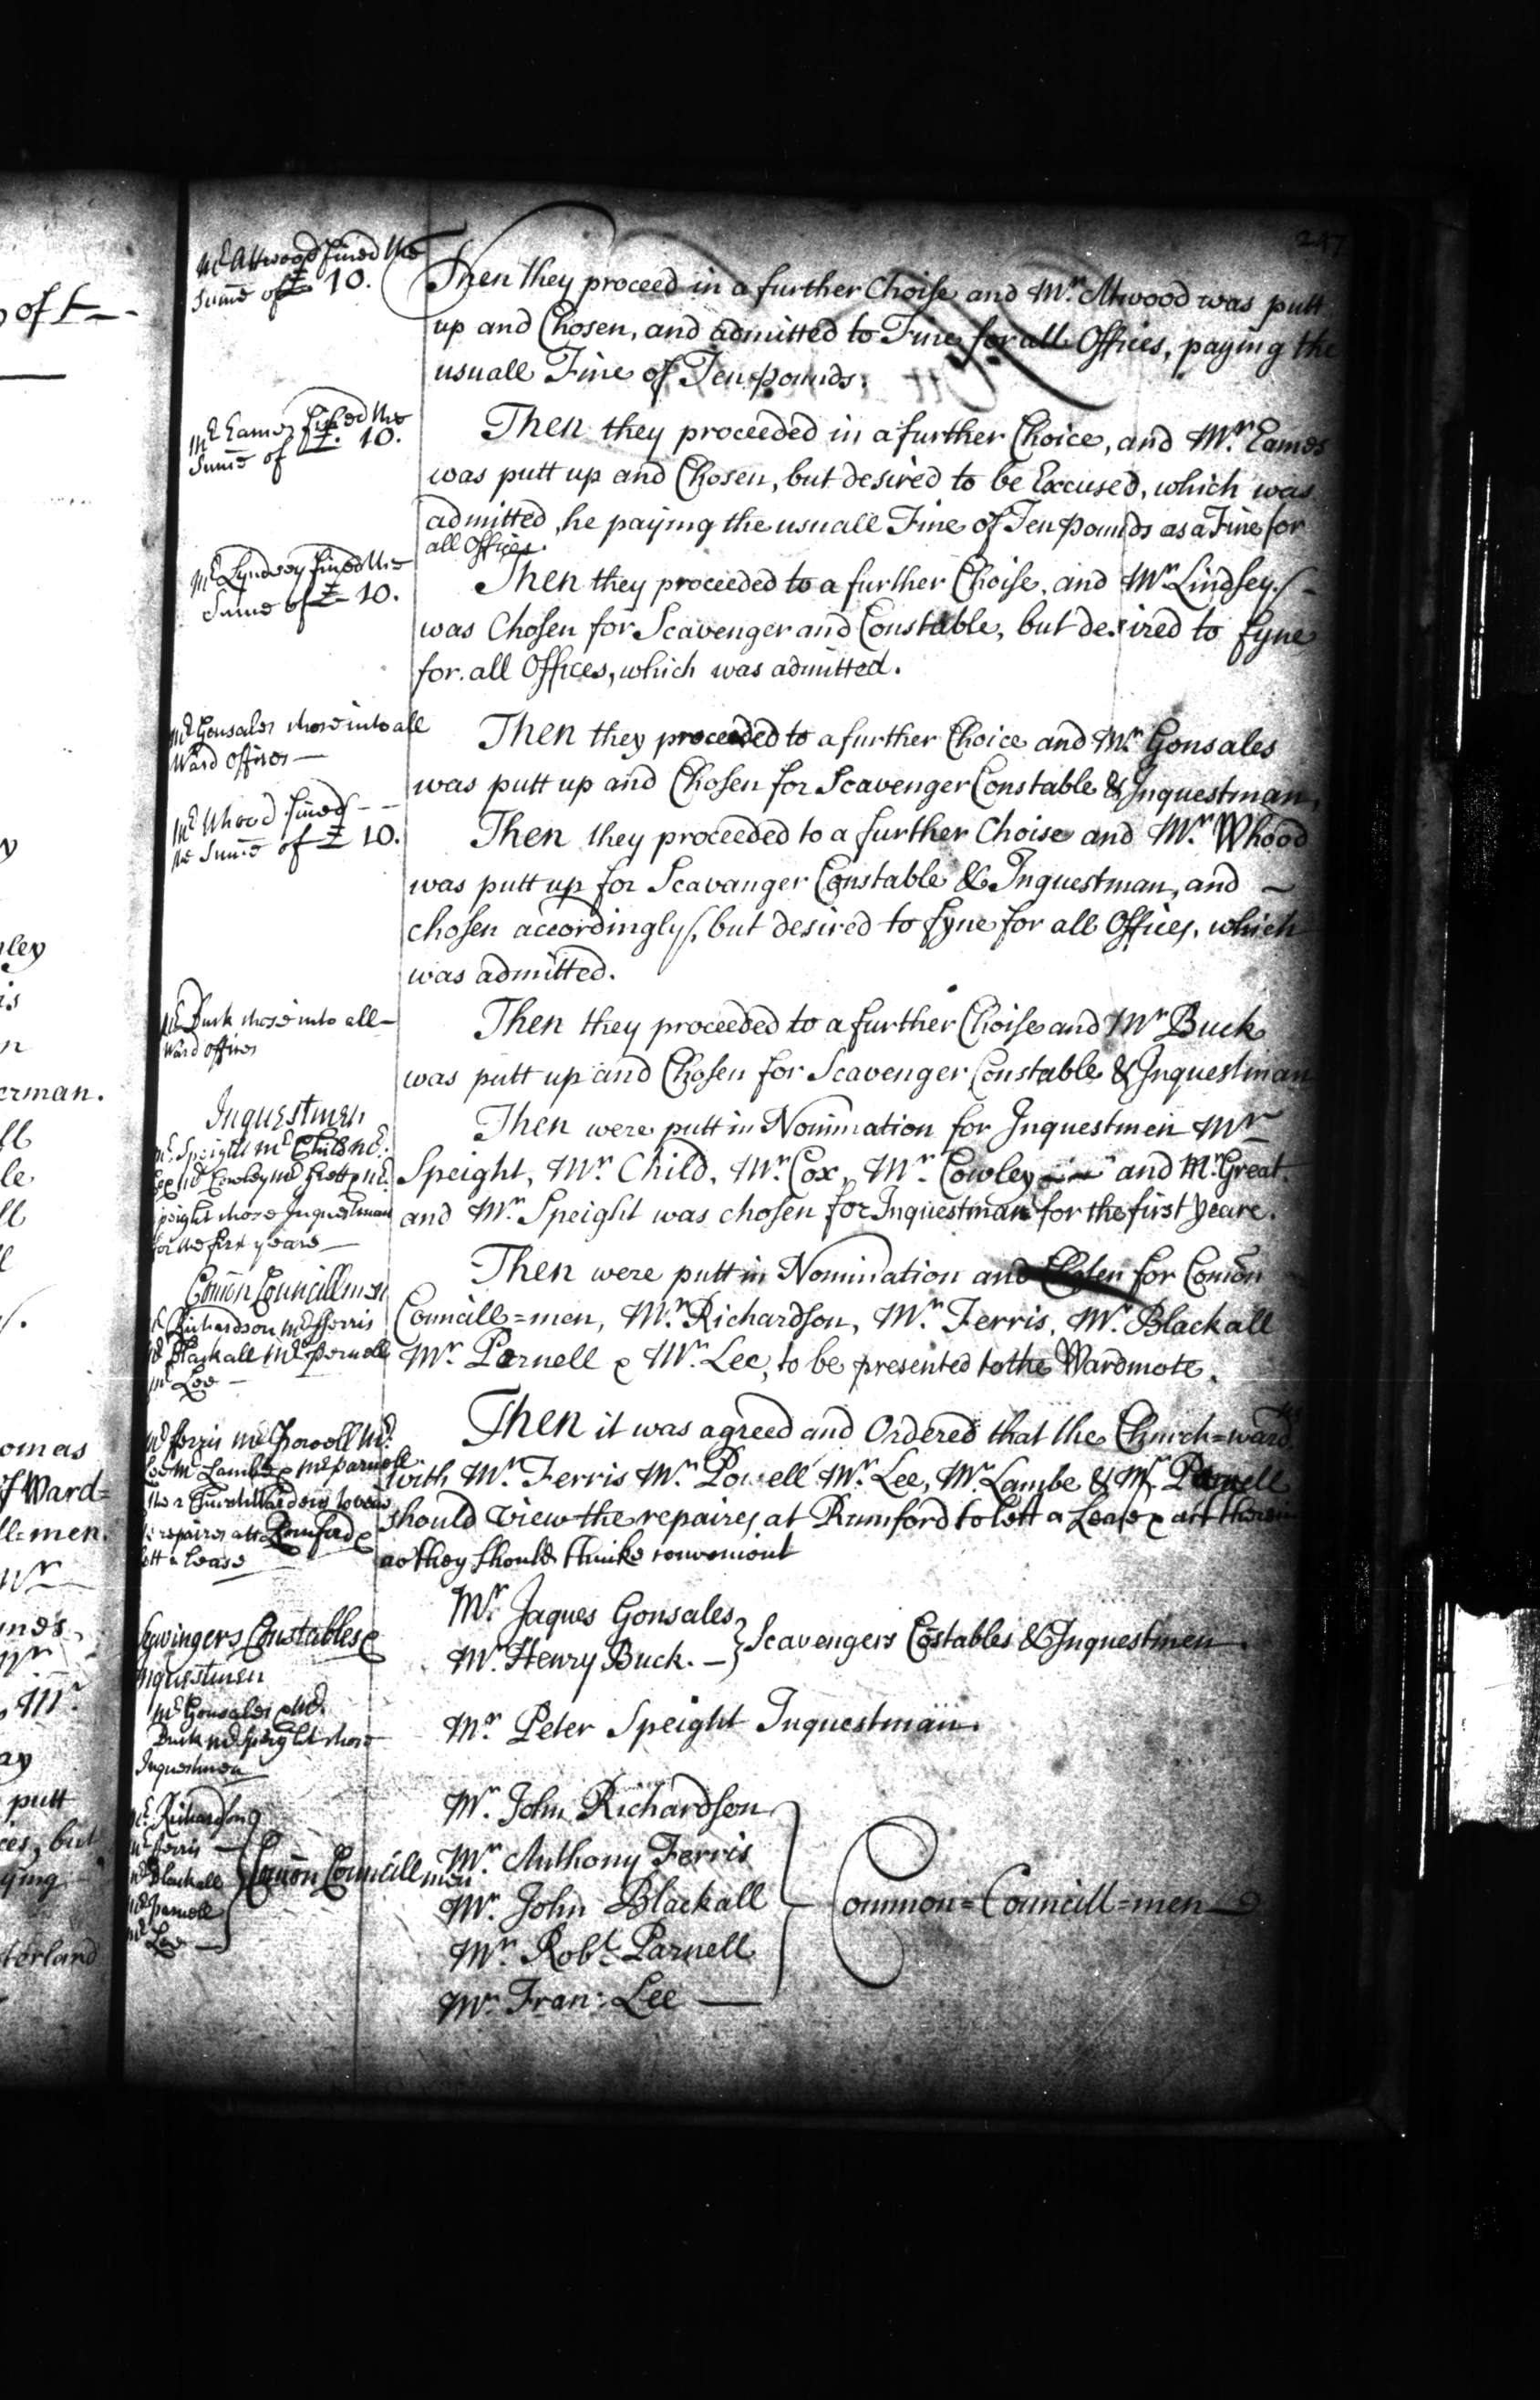 247
Mr Attwood fined the
Sume of £ 10.
Then they proceed in a further Choise and Mr. Atwood was putt
up and Chosen, and admitted to Fine for all Offices, paying the
usuall Fine of Ten pounds.
Mr Eames fined the
Sume of £ 10.
Then they proceeded in a further Choice, and Mr. Eames
was putt up and Chosen, but desired to be Excused, which was
admitted, he paying the usuall Fine of Ten pounds as a Fine for
all Offices.
Mr Lyndsey fined the
Sume of £ 10.
Then they proceeded to a further Choise, and Mr. Lindsey
was Chosen for Scavenger and Constable, but desired to fyne
for all Offices, which was admitted.
Mr Gonsales chose into all
Ward offices —
Then they proceeded to a further Choice and Mr. Gonsales
was putt up and Chosen for Scavenger Constable & Inquestman,
Mr Whood fined --
the Sume of £ 10.
Then they proceeded to a further Choise and Mr. Whood
was putt up for Scavanger Constable & Inquestman, and –
chosen accordingly, but desired to fyne for all Offices, which
was admitted.
Mr Buck chose into all –
Ward offices
Then they proceeded to a further Choise and Mr Buck
was putt up and Chosen for Scavenger Constable & Inquestman
Inquestmen
Mr Speight Mr Child Mr.
Cox Mr Cowley Mr Grett & Mr.
Speight chose Inquestman
for the first yeare —
Then were putt in Nomination for Inquestmen Mr
Speight, Mr. Child, Mr. Cox, Mr. Cowley and Mr. Great.
and Mr. Speight was chosen for Inquestman for the first yeare.
Comon Councillmen
Mr Richardson Mr Fferris
Mr Blackall Mr Pernell
Mr Lee –
Then were putt in Nomination and Chosen for Comon
Councill=men, Mr. Richardson, Mr. Ferris, Mr. Blackall
Mr. Parnell & Mr. Lee, to be presented to the Wardmote.
Mr Ferris Mr Powell Mr.
Lee Mr Lambe & Mr Parnell
the 2 Churchwardens to view
the repaires att Rumford &
lett a Lease
Then it was agreed and Ordered that the Church=wards
with Mr. Ferris Mr. Powell Mr. Lee, Mr. Lambe & Mr. Parnell
should view the repaires at Rumford to lett a Lease & act therein
as they should thinke convenient
Scavingers Constables &
Inquestmen
Mr Gonsales & Mr.
Buck Mr Speight chose
Inquestmen
Mr. Jaques Gonsales
Mr. Henry Buck. – } Scavengers Costables & Inquestmen.
Mr. Peter Speight Inquestman.
Mr. Richardson
Mr Ferris
Mr Blackall
Mr Parnell
Mr Lee –
Comon Councillmen
Mr. John Richardson
Mr. Anthony Ferris
Mr. John Blackall
Mr. Robt. Parnell
Mr. Fran: Lee —
Common=Councill=men